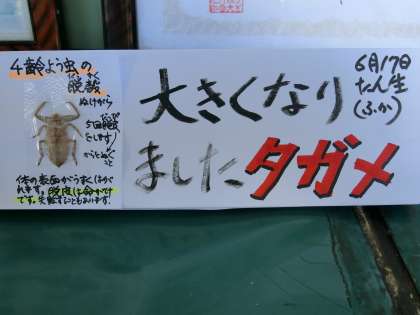 4齢よう虫の
脱殻
ぬけがら
5回脱皮
をします
からだぬぐ
体の表面がうすくはが
れます。脱皮は命がけ
です。失敗することもあります。
大きくなり
ましたタガメ
6月17日
たん生
(ふか)